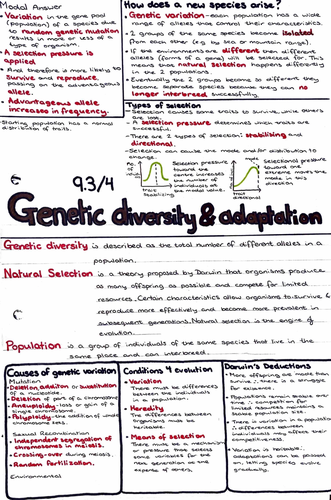 Modal Answer
• Variation in the gene pool
(population) of a species due
to random genetic mutation
results in more or less of a
type of organism.
• A selection pressure is
applied
• And therefore is more likely to
Survive and reproduce,
passing on the advantageous
allele.
• Advantageous allele
increases in frequency.
• Starting population has a normal
distribution of traits.
How does a new species arise?
• Genetic variation - each population has a wide
range of alleles that control their characteristics.
• 2 groups of the same species become isolated
from each other (e.g by sea or mountain range).
• If the environments are different then different
alleles (forms of a gene) will be selected for. This
means that natural selection happens differently
in the 2 populations.
• Eventually the 2 groups become so different they
become separate species because they can no
longer interbreed successfully.
Types of selection
• Selection causes some traits to survive, while others
are lost.
• A selection pressure determines which traits are
successful.
• There are 2 types of selection: stabilising and
directional.
• Selection can cause the mode and/or distribution to
change.
No. of
Selection pressure
toward the
centre increases
the number of
individuals at
the modal value.
trait
Stabilizing
mode
Selectional pressure
toward one
extreme moves the
mode in this
direction
trait
directional
9.3/4
Genetic diversity & adaptation
Genetic diversity is described as the total number of different alleles in a
population.
Natural Selection is a theory proposed by Darwin that organisms produce
as many offspring as possible and compete for limited
resources. Certain characteristics allow organisms to survive &
reproduce more effectively and become more prevalent in
subsequent generations. Natural selection is the engine of
evolution.
Population is a group of individuals of the same species that live in the
same place and can interbreed.
Causes of genetic variation
Mutation
• Deletion, addition or substitution
of a nucleotide.
• Deletion of part of a chromosome
• Aneuploidy - loss or gain of a
single chromosome
• Polyploidy - the addition of whole
chromosome sets.
Sexual Recombination
• Independent segregation of
chromosomes in meiosis.
• Crossing-over during meiosis.
• Random fertilization.
Environmental
Conditions 4 evolution
• Variation
There must be differences
between the individuals
in a population.
• Heredity
The differences between
organisms must be
heritable.
• Means of selection
There must be a mechanism
or pressure that selects
some variants for the
next generation at the
expense of others.
Darwin's Deductions
• More offspring are made than
survive / there is a struggle
for existence.
• Populations remain stable over
time / competition for
limited resources maintains a
stable population size.
• There is variation in a population
in differences between
individuals may affect their
competitiveness.
• Variation is heritable,
adaptations can be passed
on, letting species evolve
gradually.